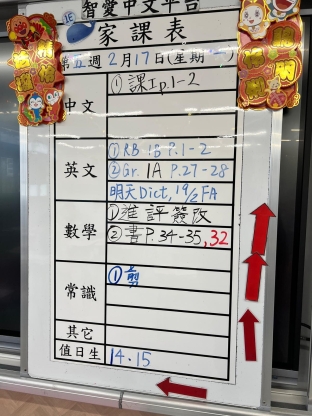 智愛中文平台
家課表
第五週2月17日(星期一)
中文
①課I p.1-2
英文
①RB 1B P.1-2
②Gr. 1A P.27-28
明天Dict, 19/2 FA
數學
①進評簽改
②書P.34-35,32
常識
①剪
其它
值日生
14.15